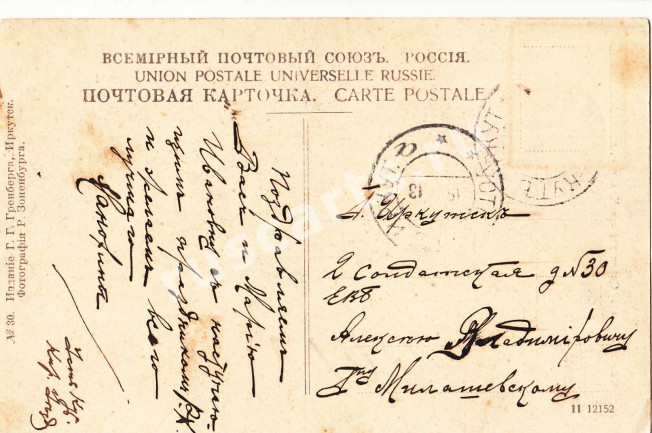 ВСЕМІРНЫЙ ПОЧТОВЫЙ СОЮЗЪ. РОССІЯ.
UNION POSTALE UNIVERSELLE RUSSIE.
ПОЧТОВАЯ КАРТОЧКА. CARTE POSTALE
№ 30. Изданіе Г. Г. Гренберга, Иркутск.
Фотографія Р. Зоненбурга.
Поздравляемъ
Васъ и Марію
Ивановну съ наступаю-
щимъ праздникомъ Р.Х.
и желаемъ всего
лучшаго
г. Иркутскъ
2 Солдатская д N 30
ЕВБ
Алексею Владиміровичу
Гну Милашевскому
11 12152
ruscarts.ru